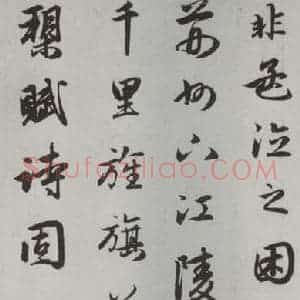 非孟德之困
荊州下江陵
千里旌旗
槊賦詩固
Shufaziliao.com